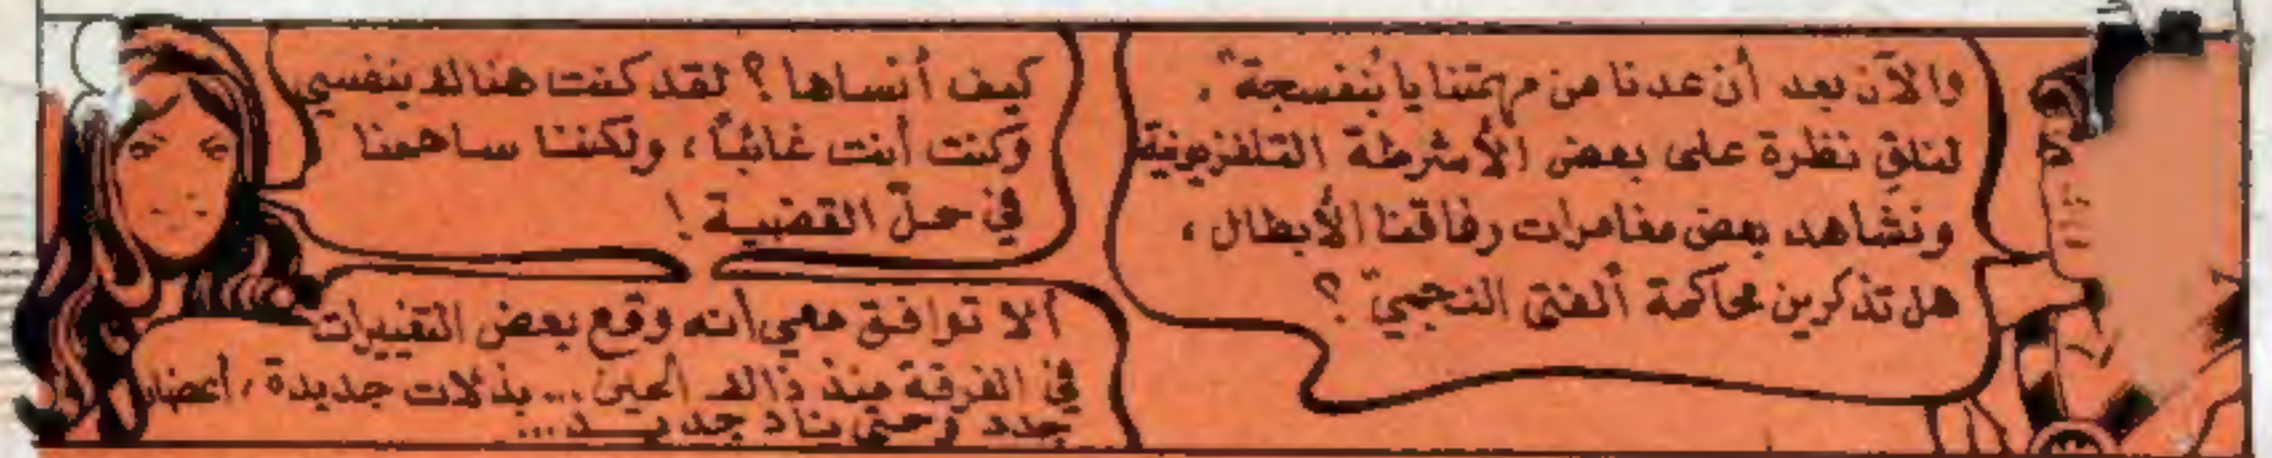 والآن بعد أن عدنا من مهمتنا يا "بنفسجة"،
لنلقِ نظرة على بعض الأشرطة التلفزيونية
ونشاهد بعض مغامرات رفاقنا الأبطال،
هل تذكرين محاكمة ألفتى النجميّ؟
كيف أنساها؟ لقد كنت هنالك بنفسي
وكنت أنت غائباً، ولكننا ساهمنا
في حلّ القضية!
ألا توافق معي أنه وقع بعض التغييرات
في الفرقة منذ ذالك الحين... بذلات جديدة، أعضاء
جدد وحتى ناد جديد...